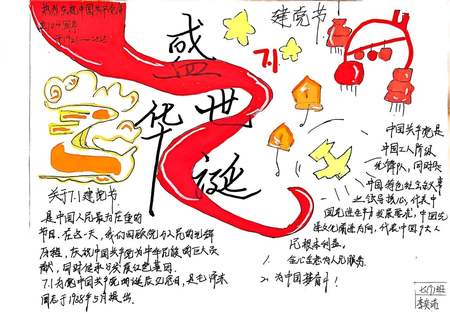 热烈庆祝中国共产党成
建党节
盛世
华诞
7.1
关于7.1建党节
是中国人民最为庄重的
节日。在这一天,我们回顾党与人民的光辉
历程,庆祝中国共产党为中华民族的巨大贡
献,同时继承与发展红色基因。
7.1为党中国共产党的诞辰纪念日,是毛泽东
同志于1938年5月提出。
中国共产党是
中国工人阶级
先锋队,同时是
中国特色社会主义事
业领导核心,代表中
国先进生产力发展要求,中国先
进文化前进方向,代表中国广大人
民根本利益。
1. 全心全意为人民服务。
2. 为中国梦奋斗!